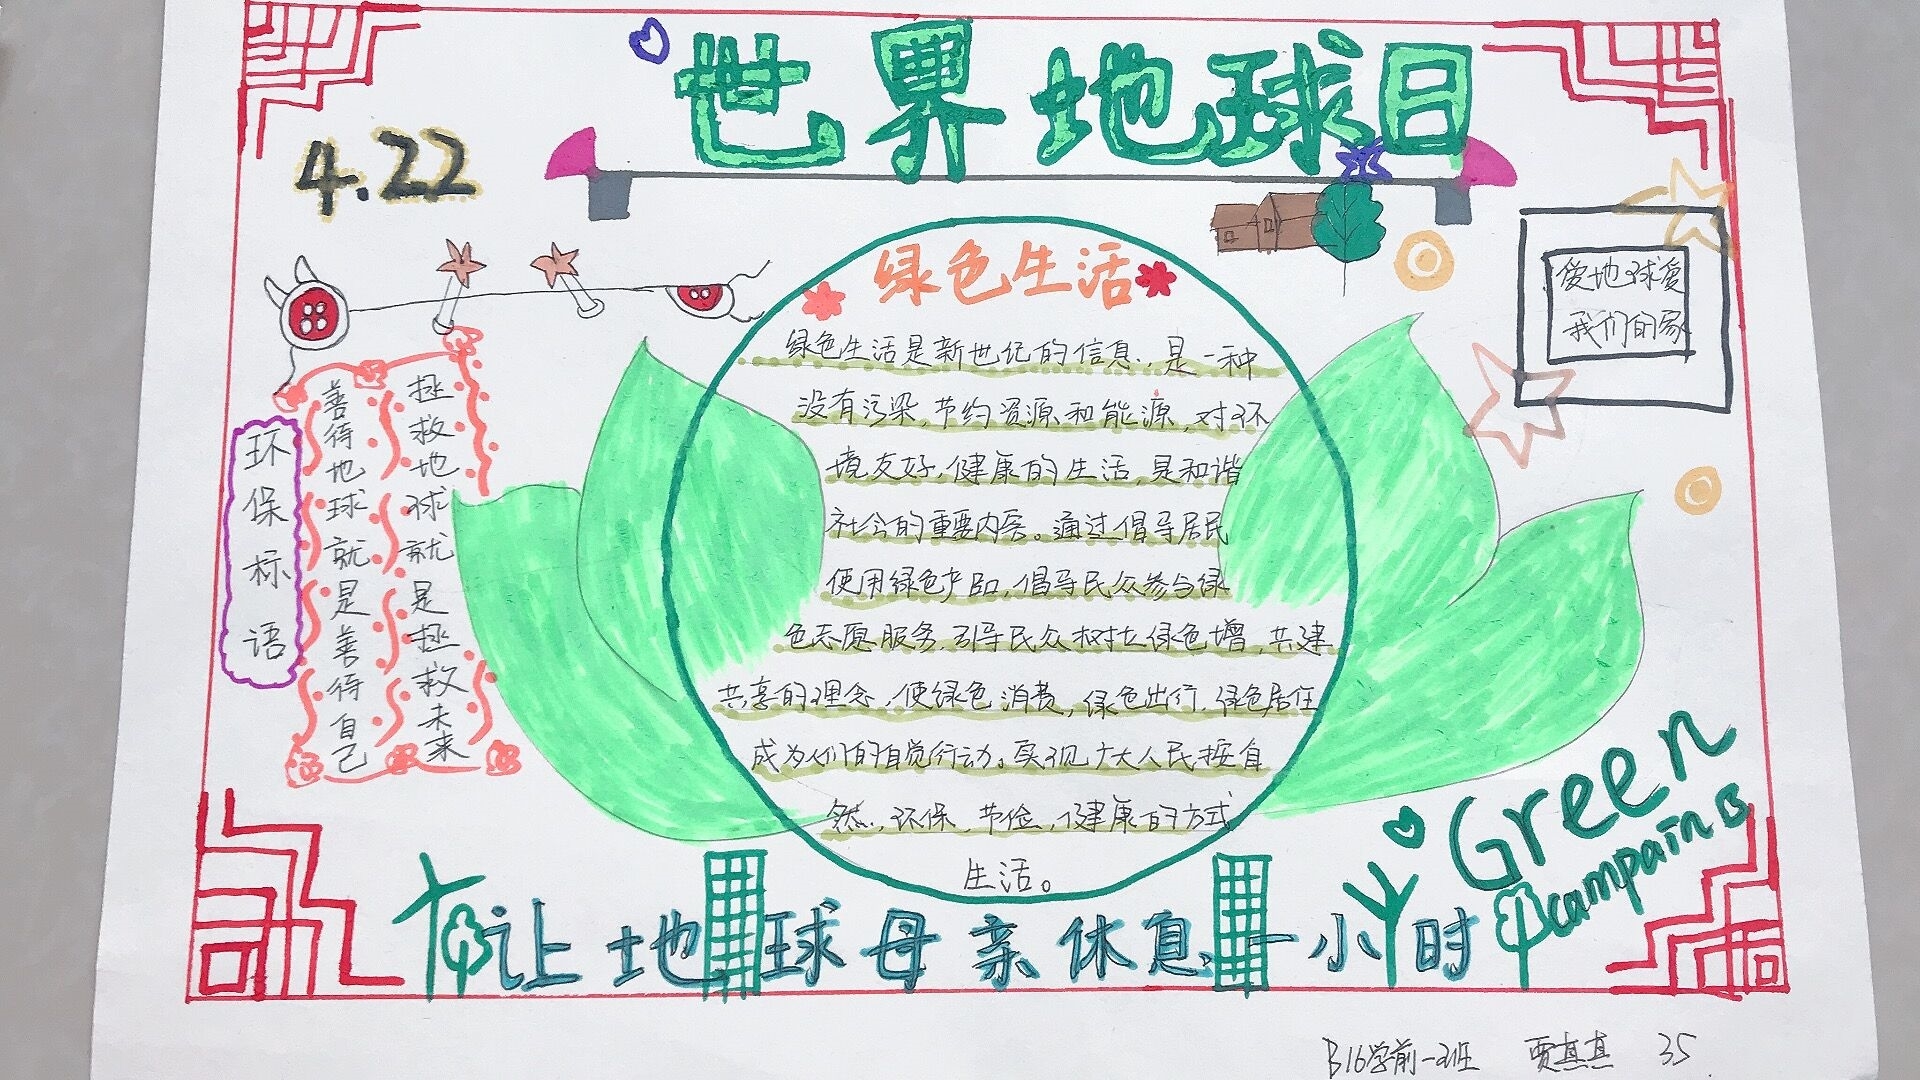 世界地球日
4.22
绿色生活
绿色生活是新世纪的信息,是一种
没有污染,节约资源和能源,对环
境友好,健康的生活,是和谐
社会的重要内容。通过倡导居民
使用绿色产品,倡导民众参与绿
色志愿服务,引导民众树立绿色增,共建
共享的理念,使绿色消费,绿色出行,绿色居住
成为人们的自觉行动。实现广大人民按自
然,环保,节俭,健康的方式
生活。
爱地球爱
我们的家
环保标语
善待地球就是善待自己
拯救地球就是拯救未来
Green
campain
让地球母亲休息一小时
B16学前一班 贾真真 35